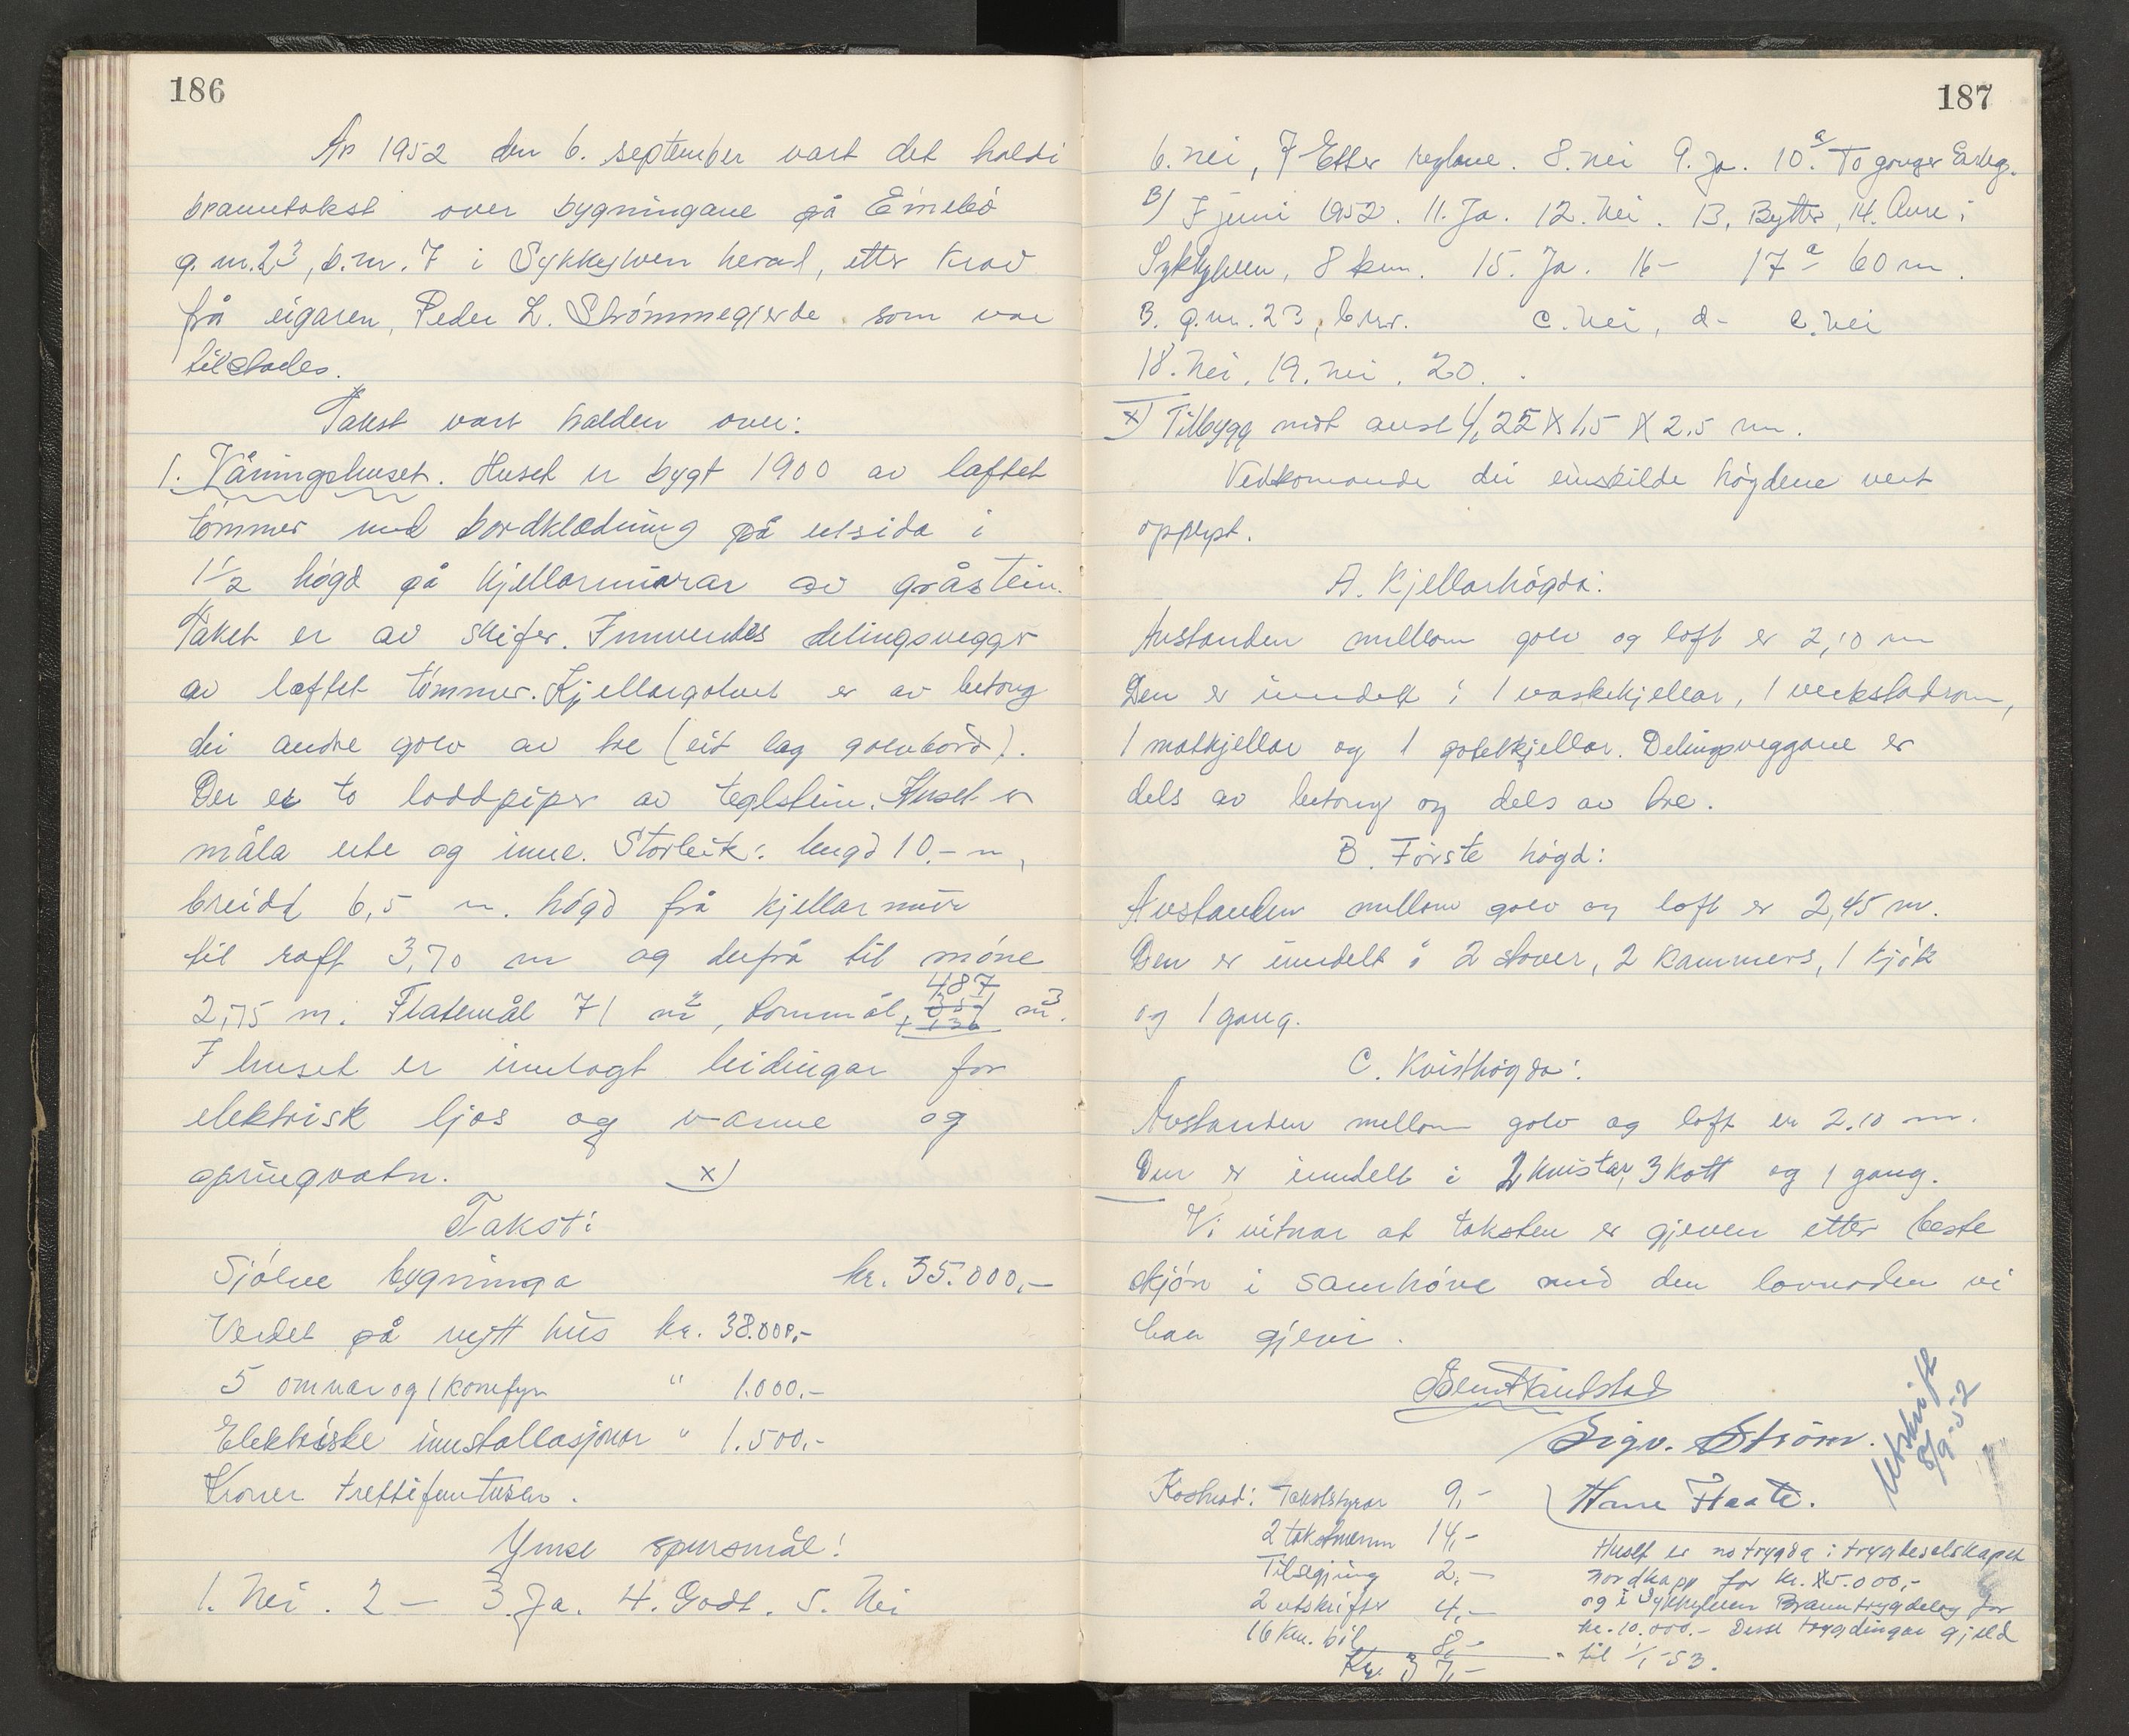 186
År 1952 den 6. september vart det haldi
branntakst over bygningane på Eimebø
g.nr.23, b.nr. 7 i Sykkylven herad, etter krav
frå eigaren, Peder L. Strømmegjerde som var
tilstades.
Takst vart halden over:
1. Våningshuset. Huset er bygt 1900 av laftet
tømmer med bordklædning på utsida i
1½ høgd på kjellarmurar av gråstein.
Taket er av skifer. Innvendes delingsvegger
av laftet tømmer. Kjellargolvet er av betong
dei andre golv av tre (eit lag golvbord).
Der er to loddpiper av teglstein. Huset er
måla ute og inne. Storleik: lengd 10.- m,
breidd 6,5 m. høgd frå kjellarmur
til raft 3,70 m og derfrå til møne
487
2,75 m. Flatemål 71 m², rommål, 351 m³.
+ 136
I huset er innlagt leidingar for
elektrisk ljos og varme og
springvatn. x)
Takst:
Sjølve bygninga kr. 35.000,-
Verdet på nytt hus kr. 38.000,-
5 omnar og 1 komfyr " 1.000.-
Elektriske installasjonar " 1.500,-
Kroner trettifemtusen.
Ymse spursmål!
1. Nei. 2 - 3. Ja. 4. Godt. 5. Nei
187
6. nei, 7 Etter reglane. 8. nei 9. Ja. 10.a To gonger årleg.
B) I juni 1952. 11. Ja. 12. Nei. 13. Bytte, 14. Aure i
Sykkylven, 8 km. 15. Ja. 16 - 17 a 60 m.
B. g.nr. 23, b.nr. c. Nei, d - e. Nei
18. Nei. 19. nei. 20. .
x) Tilbygg mot aust 4,25 X 1,5 X 2,5 m.
Vedkomande dei einskilde høgdene vert
opplyst.
A. Kjellarhøgda:
Avstanden millom golv og loft er 2,10 m
Den er inndelt i 1 vaskekjellar, 1 verkstadrom,
1 matkjellar og 1 potetkjellar. Delingsveggane er
dels av betong og dels av tre.
B. Første høgd:
Avstanden millom golv og loft er 2,45 m.
Den er inndelt i 2 stover, 2 kammers, 1 kjøk
og 1 gang.
C. Kvisthøgda:
Avstanden mellom golv og loft er 2.10 m.
Den er inndelt i 2 kvistar, 3 kott og 1 gang.
Vi vitnar at taksten er gjeven etter beste
skjøn i samhøve med den lovnaden vi
har gjevi.
Bernt Tandstad
Sigv. Strøm.
Utskrift
8/9-52
Kostnad: Takststyrar 9,-
Hans Flaate.
2 takstmenn 14,-
Tilsegjing 2,-
2 utskrifter 4,-
16 km. bil 8,-
Kr. 37,-
Huset er no trygda i trygdeselskapet
Nordkapp for kr. 15.000,-
og i Sykkylven Branntrygdelag for
kr. 10.000.- Desse trygdingar gjeld
til 1/1-53.